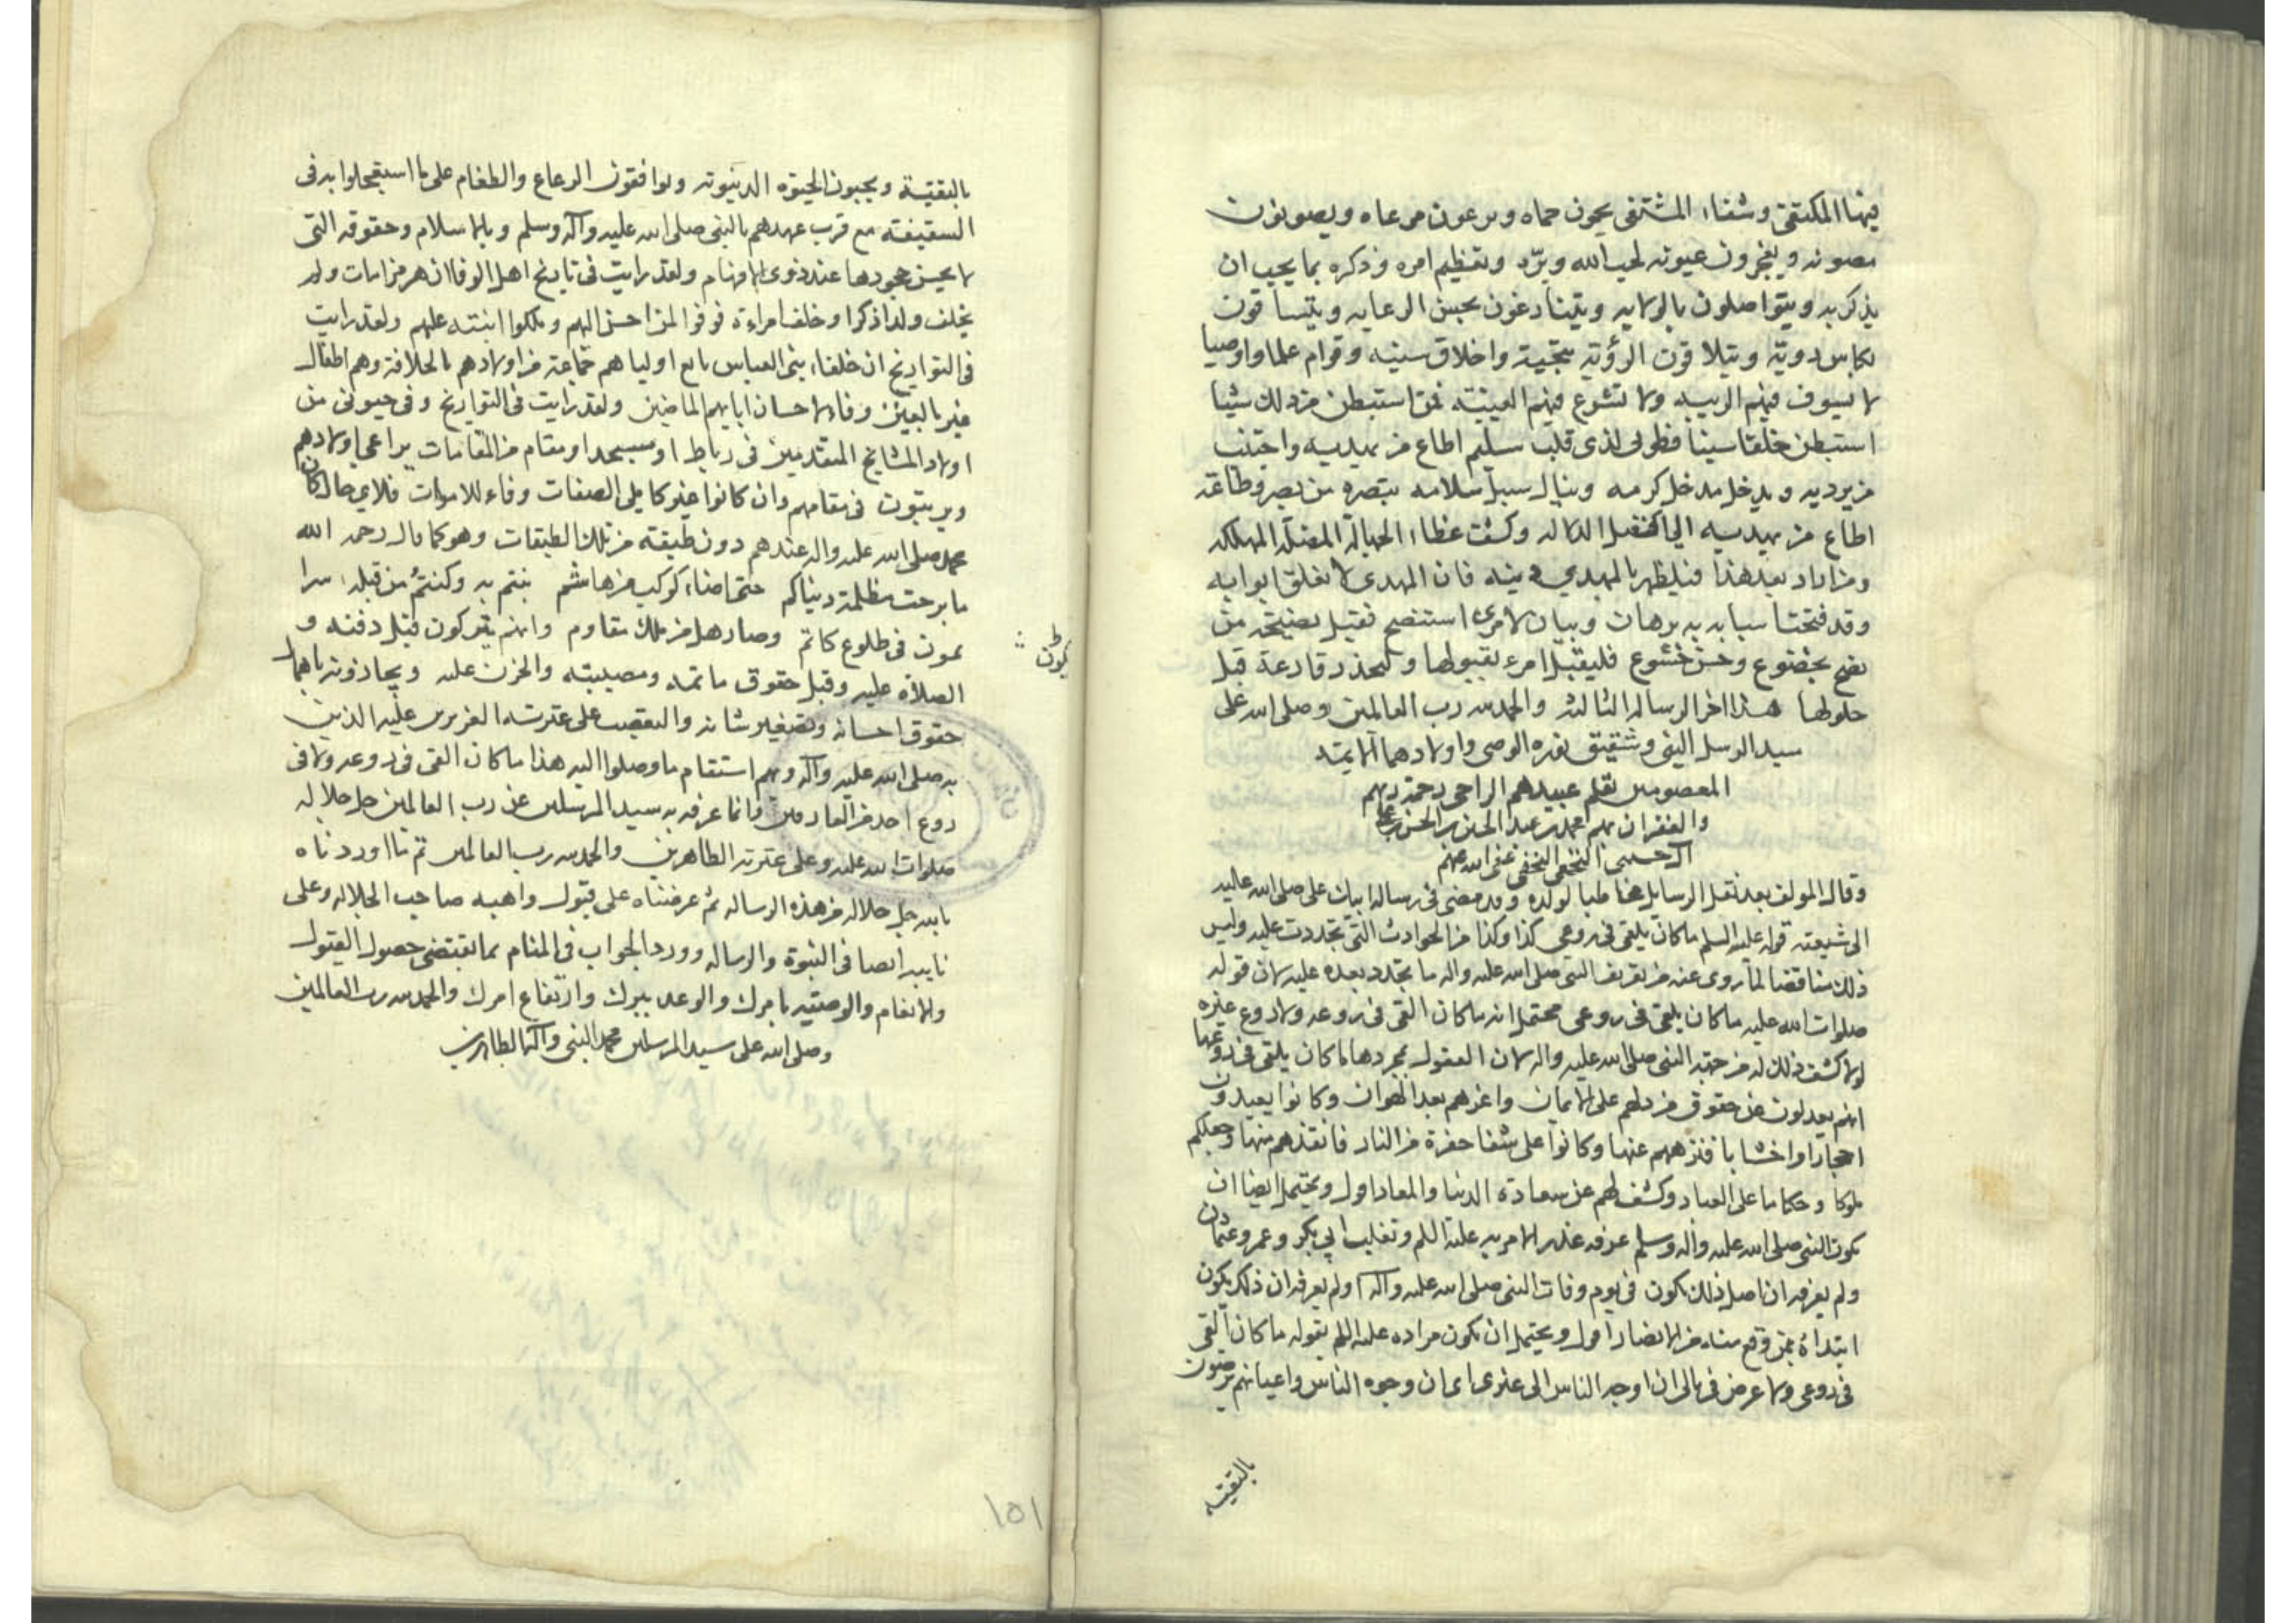 فيها المكتفى وشفاء المشتفى يحمون حماه ويرعون مرعاه ويصونون
مصونه ويفجرون عيونه لحب الله وبره وتعظيم امره وذكره بما يجب ان
يذكر به ويتواصلون بالولايه ويتنازعون بحسن الرعايه ويتساقون
بكاس رويه ويتلاقون بتحية واخلاق سنيه وقوام علما واوصيا
لا يسوف فيهم الريبه ولا تشرع فيهم الغيبة فمن استبطن من ذلك شيئا
استبطن خلقا سيئا فطوبى لذى قلب سليم اطاع من يهديه واجتنب
من يرديه ويدخل مدخل كرمه وينال سبيل سلامه تبصره من بصر وطاعة
اطاع من يهديه الى افضل الدلاله وكشف غطاء الجهالة المضله المهلكه
ومن اراد بعد هذا فليظهر بالمهدى دينه فان المهدى لا تغلق ابوابه
وقد فتحت اسبابه ببرهان وبيان لامرئ استنصح فقبل نصيحة من
نصح بخضوع وحسن خشوع فليقبل امرء بقبولها وليحذر قارعة قبل
حلولها هذا اخر الرساله الثالثه والحمد لله رب العالمين وصلى الله على
سيد الرسل النبى وشقيق نوره الوصى واولادهما الايمه
المعصومين بقلم عبيدهم الراجى رحمة ربهم
والغفران بهم محمد بن عبد الحسين بن الحسن
الحسينى النجفى عفى الله عنهم
وقال المولف بعد نقل الرسايل مخاطبا لولده وقد مضى فى رساله ابيك على صلى الله عليه
الى شيعته قوله عليه السلم ما كان يلقى فى روعى كذا وكذا من الحوادث التى تجددت عليه وليس
ذلك مناقضا لما روى عنه من تعريف النبى صلى الله عليه واله ما يتجدد بعده عليه لان قوله
صلوات الله عليه ما كان يلقى فى روعى محتمل انه ما كان القى فى روعه ولا روع غيره
لولا كشف ذلك له من جهة النبى صلى الله عليه واله لان العقول بمجردها ما كان يلقى فى روعها
انهم يعدلون عن حقوق من دلهم على الايمان واعزهم بعد الهوان وكانوا يعبدون
احجارا واخشابا فنزههم عنها وكانوا على شفا حفرة من النار فانقذهم منها وجعلكم
ملوكا وحكاما على العباد وكشف لهم عن سعادة الدنيا والمعاد اقول ويحتمل ايضا ان
يكون النبى صلى الله عليه واله وسلم عرفه غدر الامة به عليه السلم وتغلب ابى بكر وعمر وعثمان
ولم يعرفه ان اصل ذلك يكون فى يوم وفات النبى صلى الله عليه وآله او لم يعرفه ان ذلك يكون
ابتداؤه ممن وقع منه من الانصار اقول ويحتمل ان يكون مراده عليه السلم بقوله ما كان القى
فى روعى ولا عرض فى بالى ان اوجه الناس الى غيرى اى ان وجوه الناس واعيانهم يرضون
بالتقية
بالتقية ويحبون الحيوة الدنيويه ويوافقون الرعاع والطغام على ما استعجلوا به فى
السقيفة مع قرب عهدهم بالنبى صلى الله عليه وآله وسلم وبالاسلام وحقوقه التى
لا يحسن جحودها عند ذوى الافهام ولقد رايت فى تاريخ اهل الوفا ان هرمز مات ولم
يخلف ولدا ذكرا وخلف امراءة فوفوا لمن احسن اليهم وملكوا ابنته عليهم ولقد رايت
فى التواريخ ان خلفاء بنى العباس بايع اوليا هم جماعة من اولادهم بالخلافة وهم اطفال
غير بالغين وفاء لاحسان ابايهم الماضين ولقد رايت فى التواريخ وفى حيوتى من
اولاد المشايخ المتقدمين فى رباط او مسجد او مقام من المقامات يراعى اولادهم
ويرتبون فى مقامهم وان كانوا غير كاملى الصفات وفاء للاموات فلاى حال كان
محمد صلى الله عليه واله عندهم دون طبقة من تلك الطبقات وهو كما قال رحمه الله
ما برحت مظلمة دنياكم حتى اضاء كوكب من هاشم بنتم به وكنتم من قبله سرا
يموت فى طلوع كاتم وصار هل من تلك مقاوم وانهم يتركون قبل دفنه و
الصلاه عليه وقبل حقوق ماتمه ومصيبته والحزن عليه ويجازونه باهمال
حقوق احسانه وتصغير شانه والتعصب على عترته العزيزين عليه الذين
به صلى الله عليه وآله وبهم استقام ما وصلوا اليه هذا ما كان القى فى روعه ولا فى
روع احد من العارفين وانما عرفه به سيد المرسلين عن رب العالمين جل جلاله
صلوات الله عليه وعلى عترته الطاهرين والحمد لله رب العالمين تم ما اوردناه
بالله جل جلاله من هذه الرساله ثم عرضناه على قبول واهبه صاحب الجلاله وعلى
نايبه ايضا فى النبوة والرساله وورد الجواب فى المنام بما يقتضى حصول القبول
والانعام والوصيه بامرك والوعد ببرك وارتفاع امرك والحمد لله رب العالمين
وصلى الله على سيد المرسلين محمد النبى وآله الطاهرين
١٥١